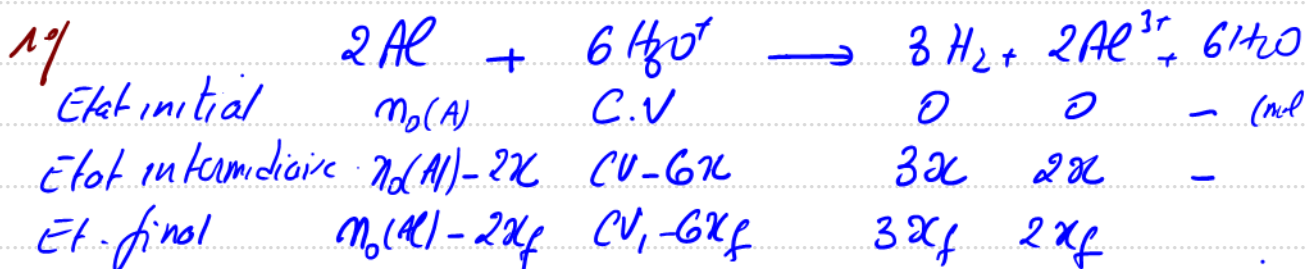 1°/ 2Al + 6H₃O⁺ → 3H₂ + 2Al³⁺ + 6H₂O
Etat initial n₀(A) C.V 0 0 - (mol
Etat intermidiaire n₀(Al)-2x CV-6x 3x 2x -
Et. final n₀(Al)-2xf CV₁-6xf 3xf 2xf